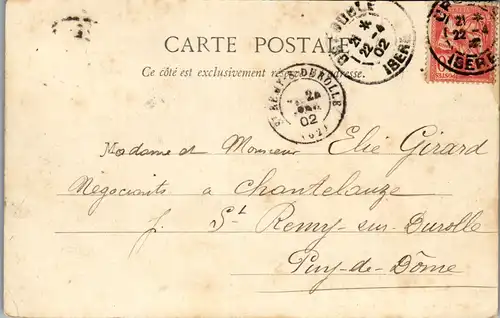 CARTE POSTALE
Ce côté est exclusivement réservé à l'adresse.
GRENOBLE
21
22 -4
02
ISÈRE
21
22 -4
ISÈRE
ST REMY-S-DUROLLE
24
02
Madame et Monsieur Elie Girard
Négociants à Chantelauze
p. St Remy-sur-Durolle
Puy-de-Dôme